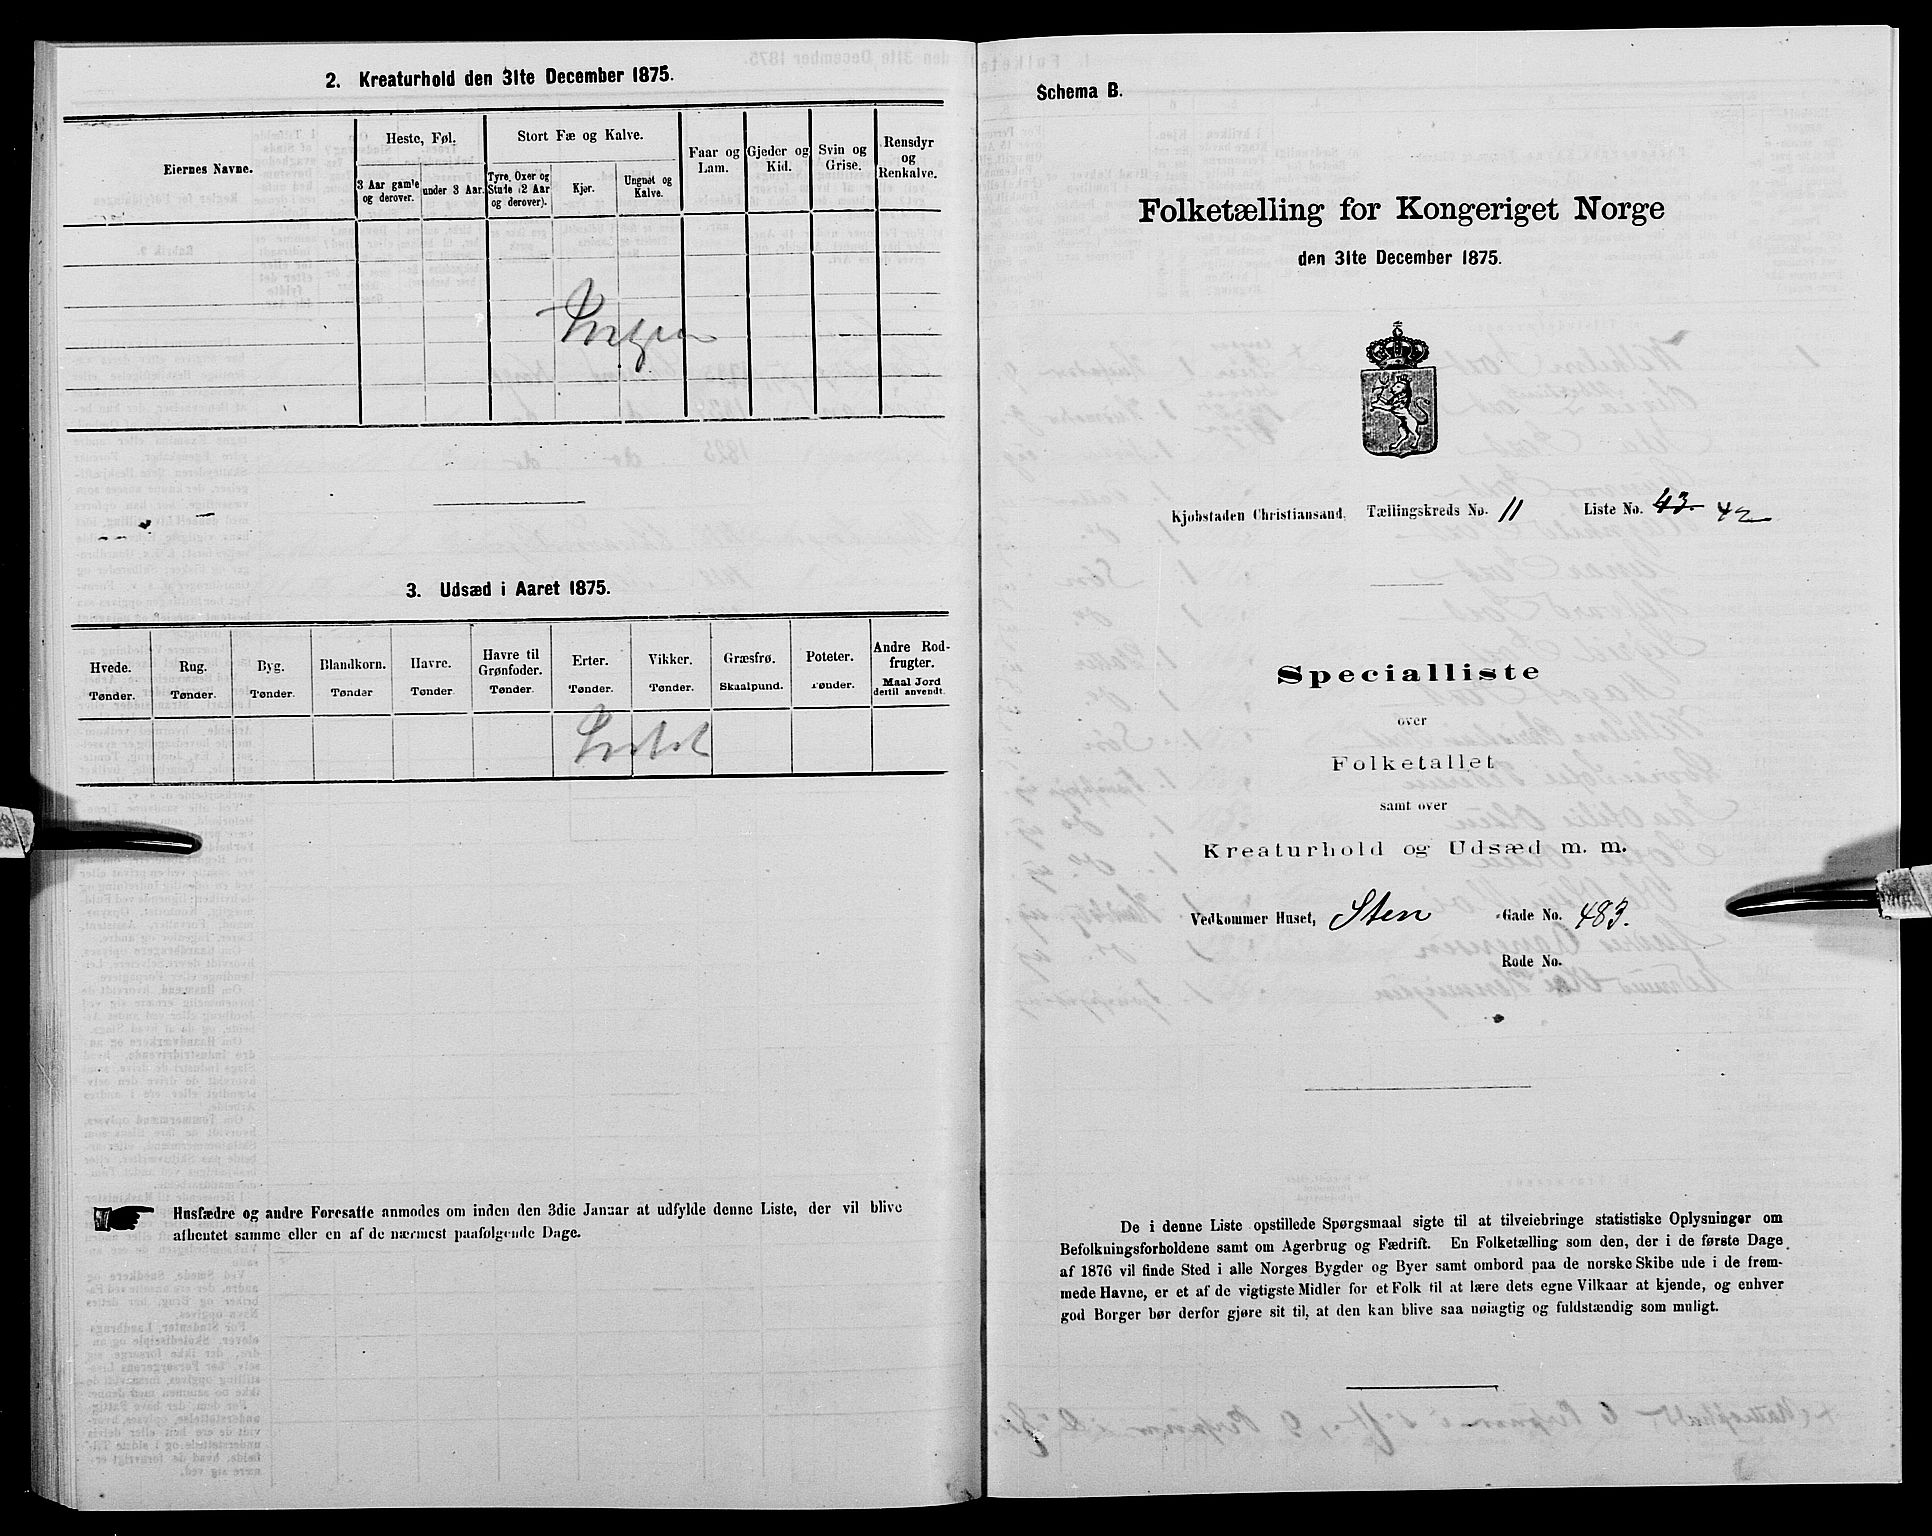 2. Kreaturhold den 31te December 1875.
Eiernes Navne.
Heste, Føl.
3 Aar gamle og derover.
under 3 Aar.
Stort Fæ og Kalve.
Tyre, Oxer og Stude (2 Aar og derover).
Kjør.
Ungnøt og Kalve.
Faar og Lam.
Gjeder og Kid.
Svin og Grise.
Rensdyr og Renkalve.
Ingen
3. Udsæd i Aaret 1875.
Hvede. Tønder.
Rug. Tønder.
Byg. Tønder.
Blandkorn. Tønder
Havre. Tønder
Havre til Grønfoder. Tønder.
Erter. Tønder.
Vikker. Tønder.
Græsfrø. Skaalpund.
Poteter. Tønder.
Andre Rodfrugter. Maal Jord dertil anvendt.
Intet
Husfædre og andre Foresatte anmodes om inden den 3die Januar at udfylde denne Liste, der vil blive
afhentet samme eller en af de nærmest paafølgende Dage.
Schema B.
Folketælling for Kongeriget Norge
den 31te December 1875.
Kjøbstaden Christiansand. Tællingskreds No. 11 Liste No. 43. 42
Specialliste
over
Folketallet
samt over
Kreaturhold og Udsæd m. m.
Vedkommer Huset, Sten Gade No. 483.
Rode No.
De i denne Liste opstillede Spørgsmaal sigte til at tilveiebringe statistiske Oplysninger om
Befolkningsforholdene samt om Agerbrug og Fædrift. En Folketælling som den, der i de første Dage
af 1876 vil finde Sted i alle Norges Bygder og Byer samt ombord paa de norske Skibe ude i de frem-
mede Havne, er et af de vigtigste Midler for et Folk til at lære dets egne Vilkaar at kjende, og enhver
god Borger bør derfor gjøre sit til, at den kan blive saa nøiagtig og fuldstændig som muligt.